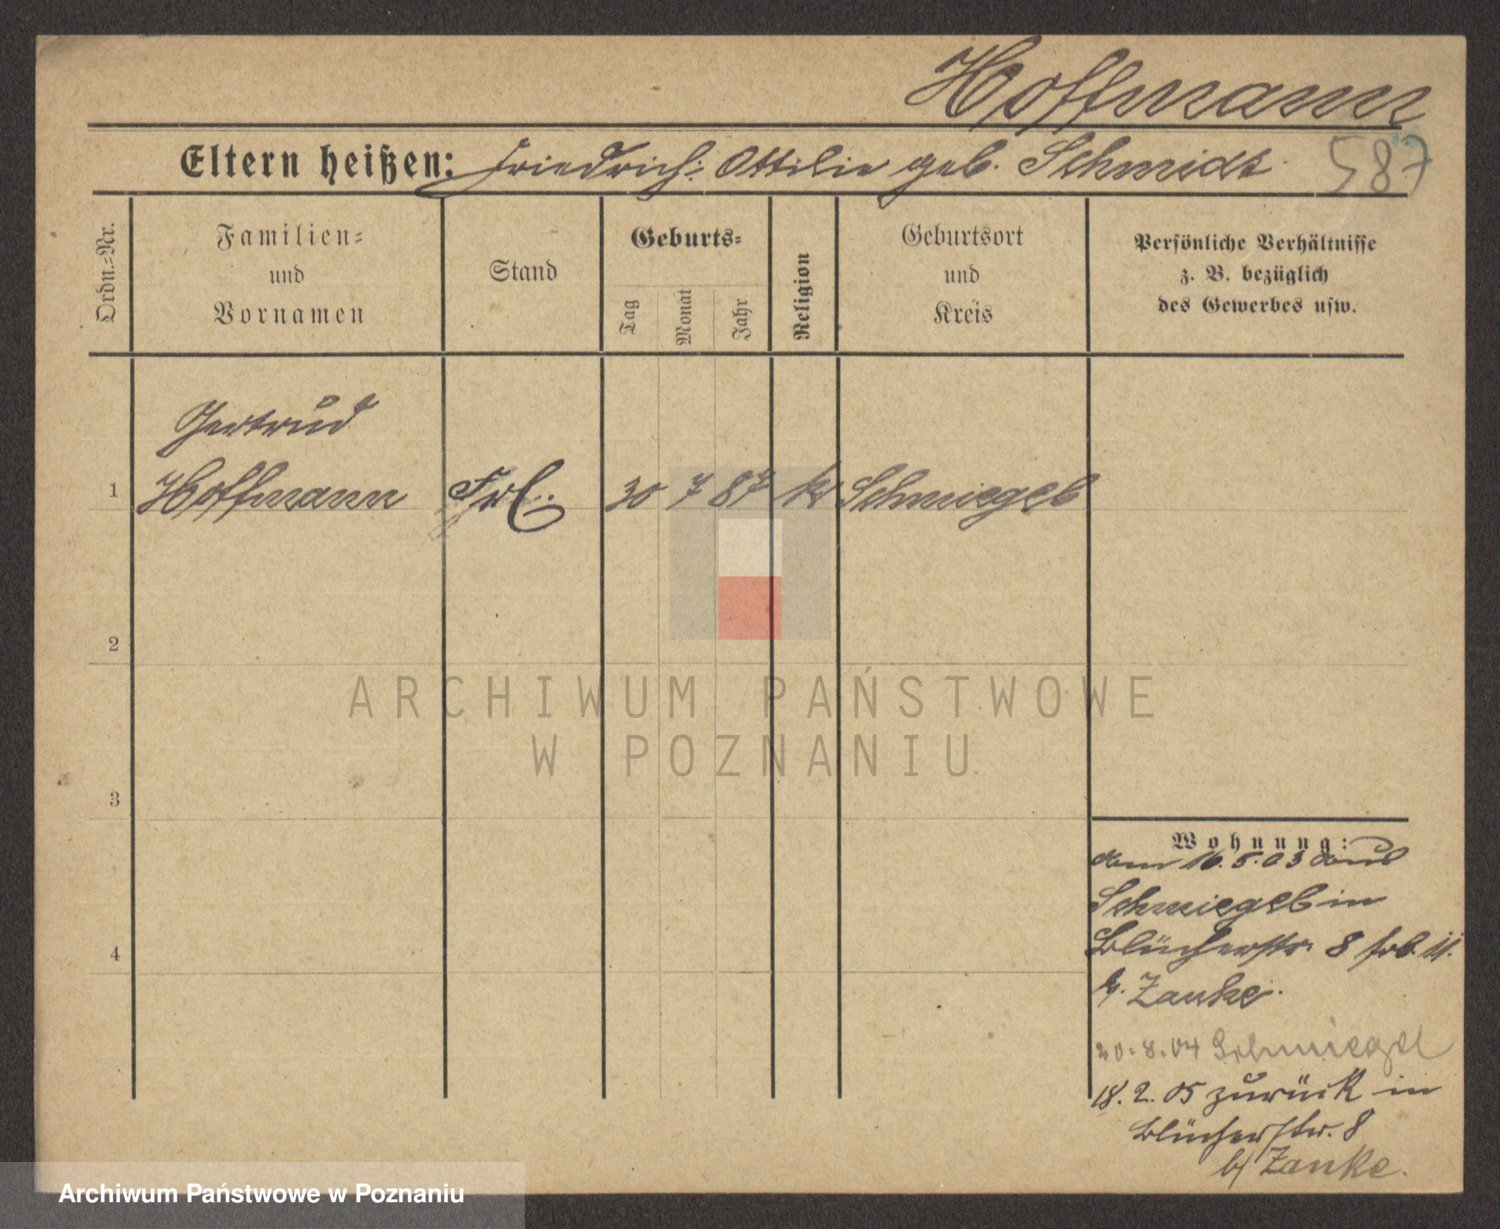 Hoffmann
Eltern heißen: Friedrich: Ottilie geb. Schmidt
587
Ordn.=Nr.
Familien=
und
Vornamen
Stand
Geburts=
Tag
Monat
Jahr
Religion
Geburtsort
und
Kreis
Persönliche Verhältnisse
z. B. bezüglich
des Gewerbes usw.
Gertrud
1 Hoffmann Frl. 30 7 87 Schmiegel
2
3
4
Wohnung:
16.5.03 aus
Schmiegel in
Blücherstr. 8
b. Zanke.
20.8.04 Schmiegel
18.2.05 zurück in
Blücherstr. 8
b/ Zanke.
ARCHIWUM PAŃSTWOWE
W POZNANIU
Archiwum Państwowe w Poznaniu